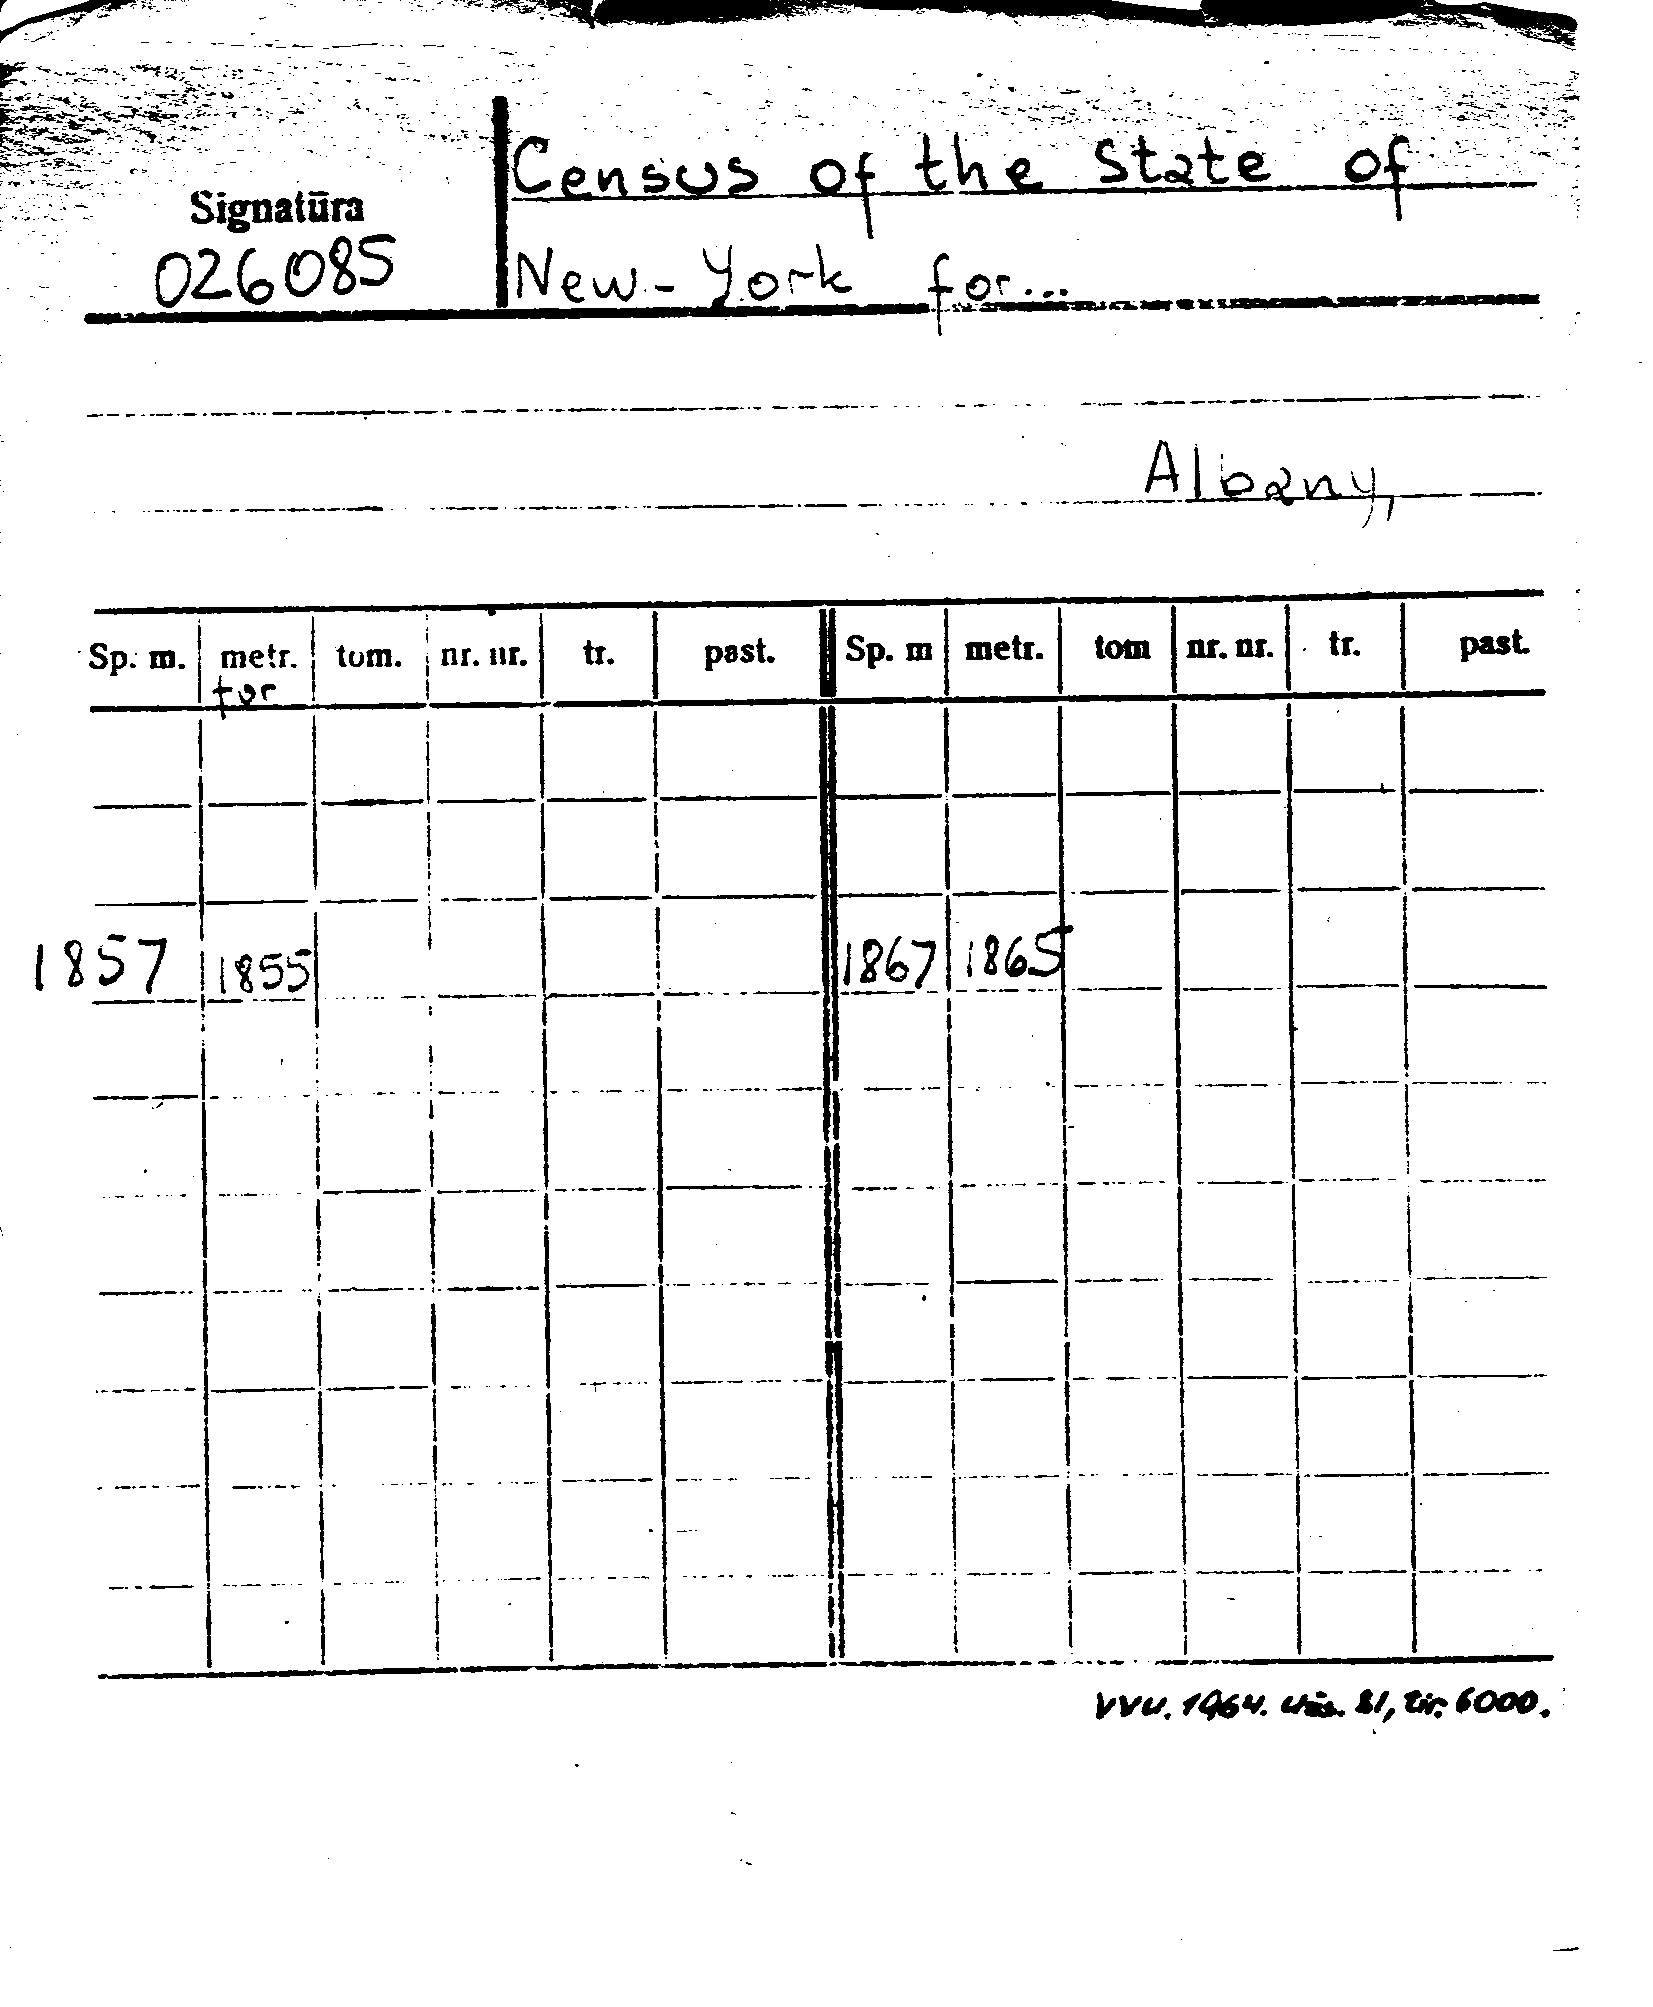 Census of the State of
Signatūra
026085
New-York for...
Albany,
Sp. m. metr. tom. nr. nr. tr. past. Sp. m metr. tom nr. nr. tr. past.
for
1857 1855 1867 1865
VVU. 1964. Užs. 81, tir. 6000.